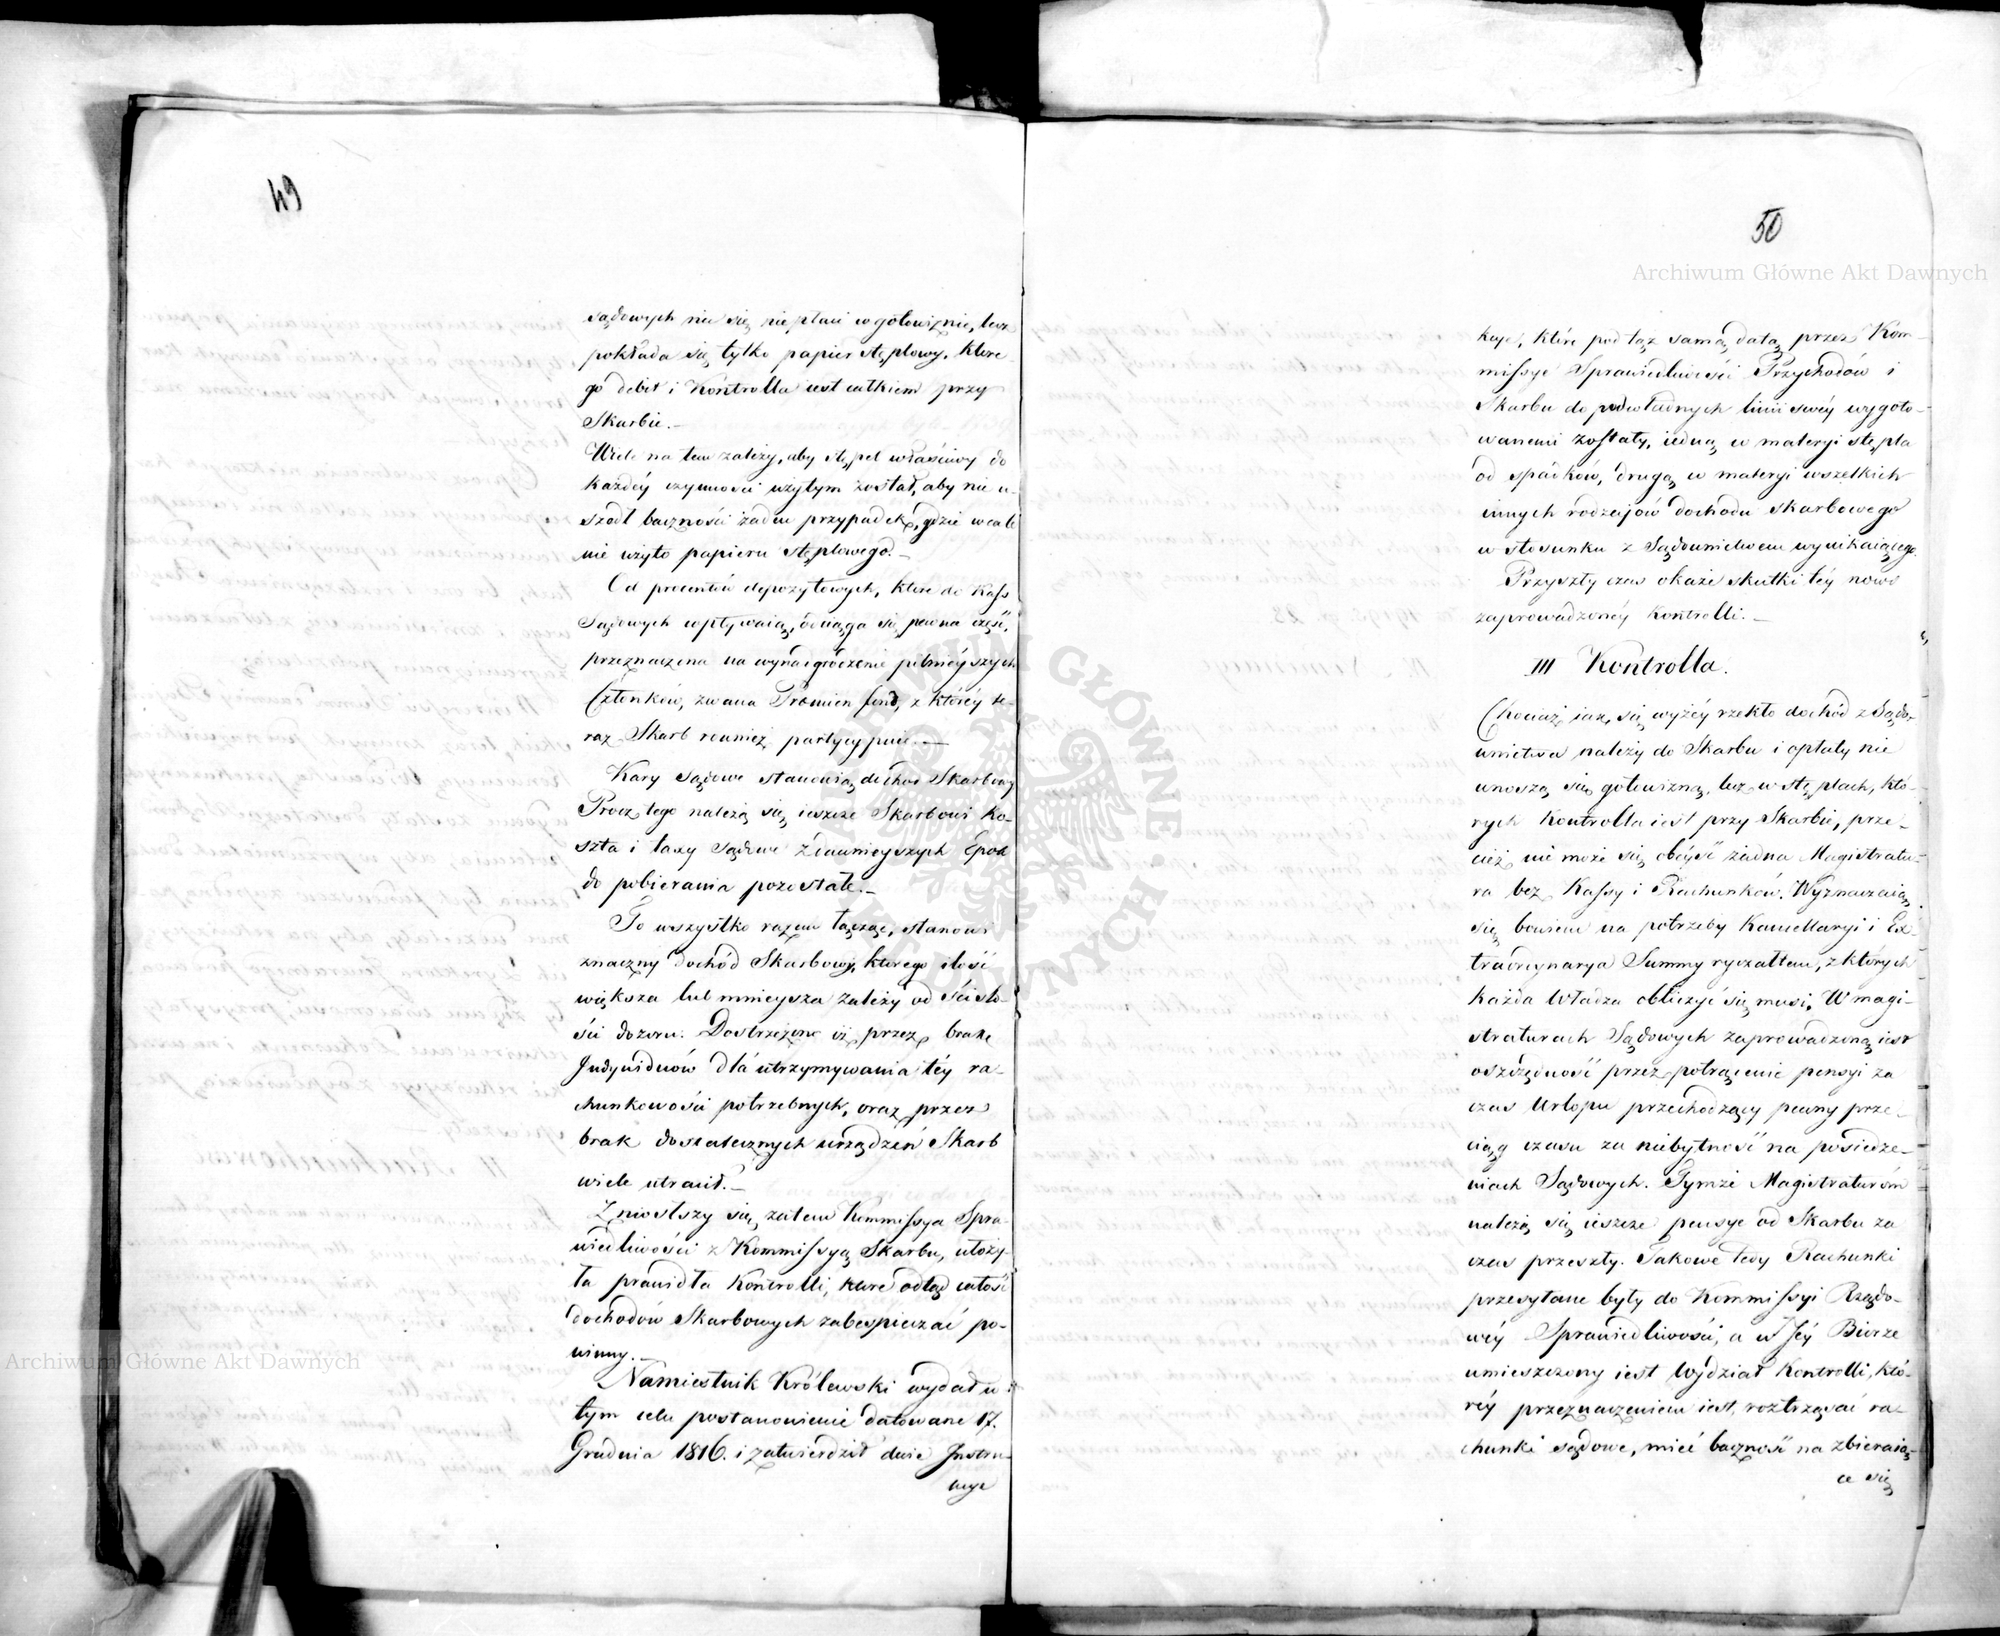 49
sądowych nic się nie płaci w gotowiznie, lecz
pokłada się tylko papier stęplowy, które-
go debit i Kontrolla iest całkiem przy
Skarbie.—
Wiele na tem zależy, aby stępel właściwy do
każdéy czynności użytym został, aby nie u-
szedł baczności żaden przypadek, gdzie wcale
nie użyto papieru stęplowego.—
Od procentów depozytowych, które do Kass
Sądowych wpływaią, ściąga się pewna część,
przeznaczona na wynadgrodzenie pilnieyszych
Członków, zwana Promien fond, z któréy te-
raz Skarb również partycypuie.—
Kary sądowe stanowią dochód Skarbowy
Procz tego należą się ieszcze Skarbowi Ko-
szta i taxy sądowe z dawnieyszych Epok
do pobierania pozostałe.—
To wszystko razem łącząc, stanowi
znaczny dochód Skarbowy, którego ilość
większa lub mnieysza zależy od ścisło-
ści dozoru. Dostrzeżono iż przez brak
Indywiduów dla utrzymywania téy ra-
chunkowości potrzebnych, oraz przez
brak dostatecznych urządzeń Skarb
wiele utracił.—
Zniosłszy się zatem Kommissya Spra-
wiedliwości z Kommissyą Skarbu, ułoży-
ła prawidła Kontrolli, które odtąd całość
dochodów Skarbowych zabespieczać po-
winny.—
Namiestnik Królewski wydał w
tym celu postanowienie datowane 17.
Grudnia 1816. i zatwierdził dwie Instru-
kcye
50
kcye, które pod tąż samą datą przez Kom-
missye Sprawiedliwości Przychodów i
Skarbu do podwładnych linii swéy wygoto-
wanemi zostały, iedną w materyi stępla
od spadków, drugą w materyi wszelkich
innych rodzajów dochodu skarbowego
w stosunku z Sądownictwem wynikaiącego.
Przyszły czas okaże skutki téy nowo
zaprowadzonéy Kontrolli.—
III Kontrolla.
Chociaż iak się wyżéy rzekło dochód z Sądo-
wnictwa należy do Skarbu i opłaty nie
wnoszą się gotowizną, lecz w stęplach, któ-
rych Kontrolla iest przy Skarbie, prze-
cież nie może się obéyść żadna Magistratu-
ra bez Kassy i Rachunków. Wyznaczaią
się bowiem na potrzeby Kancellaryi i Ex-
traordynarya Summy ryczałtem, z których
każda Władza obliczyć się musi. W magi-
straturach Sądowych zaprowadzoną iest
oszczędność przez potrącenie pensyi za
czas Urlopu przechodzący pewny prze-
ciąg czasu za niebytność na posiedze-
niach Sądowych. Tymże Magistraturom
należą się ieszcze pensye od Skarbu za
czas przeszły. Takowe tedy Rachunki
przesyłane były do Kommissyi Rządo-
wéy Sprawiedliwości, a w Jéy Biorze
umieszczony iest Wydział Kontrolli, któ-
réy przeznaczeniem iest, roztrząsać ra-
chunki sądowe, mieć baczność na zbieraią-
ce się
Archiwum Główne Akt Dawnych
Archiwum Główne Akt Dawnych